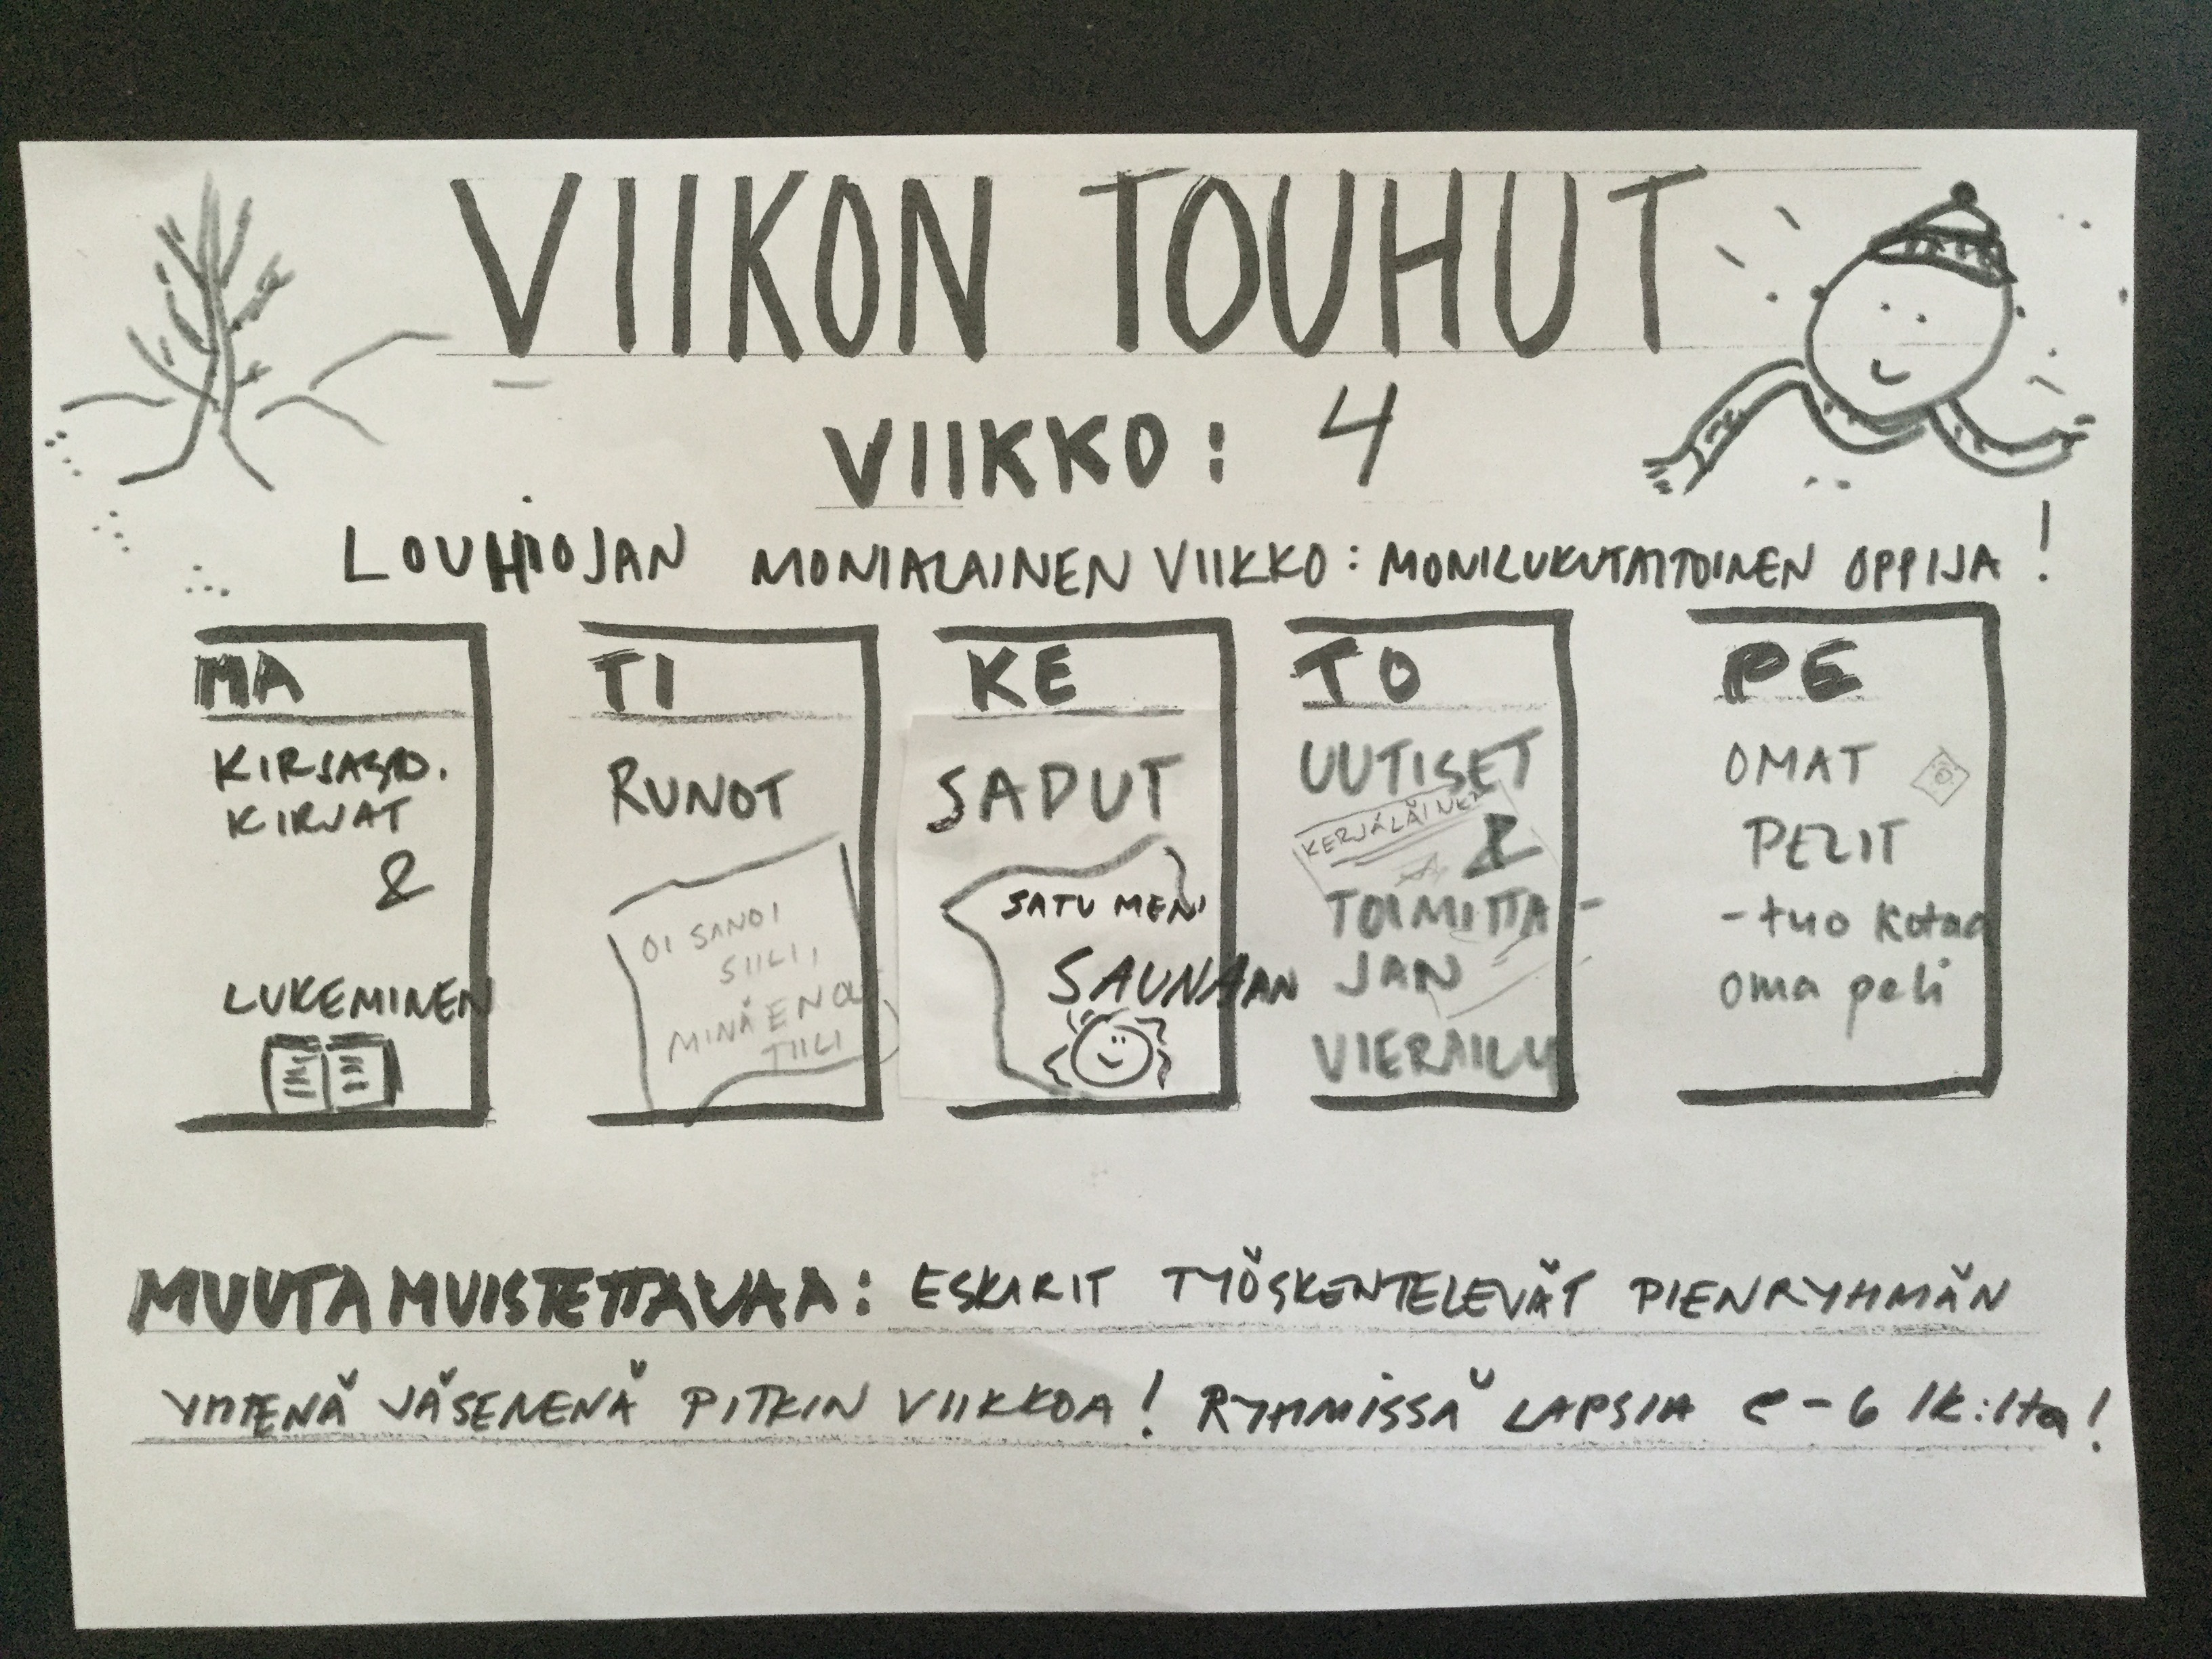 VIIKON TOUHUT
VIIKKO: 4
LOUHIOJAN MONIALAINEN VIIKKO: MONILUKUTAITOINEN OPPIJA!
MA
KIRJAST.
KIRJAT
&
LUKEMINEN
TI
RUNOT
OI SANOI
SIILI,
MINÄ EN OL
TIILI
KE
SADUT
SATU MENI
SAUNAAN
TO
UUTISET
&
TOIMITTA-
JAN
VIERAILU
PE
OMAT
PELIT
- tuo kotaa
oma peli
MUUTA MUISTETTAVAA: ESKARIT TYÖSKENTELEVÄT PIENRYHMÄN
YHTENÄ JÄSENENÄ PITKIN VIIKKOA! RYHMISSÄ LAPSIA e-6 lk:lta!